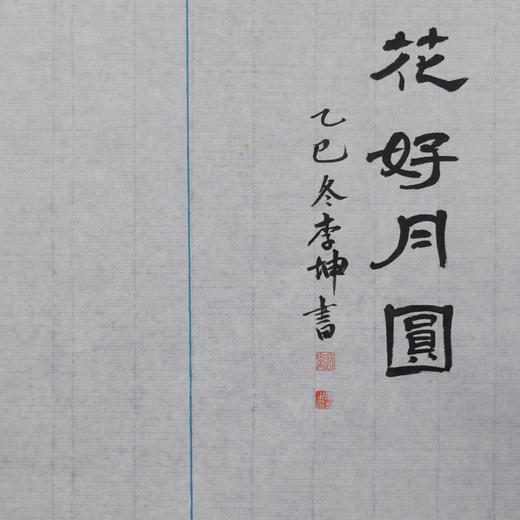 花好月圓
乙巳冬李坤書